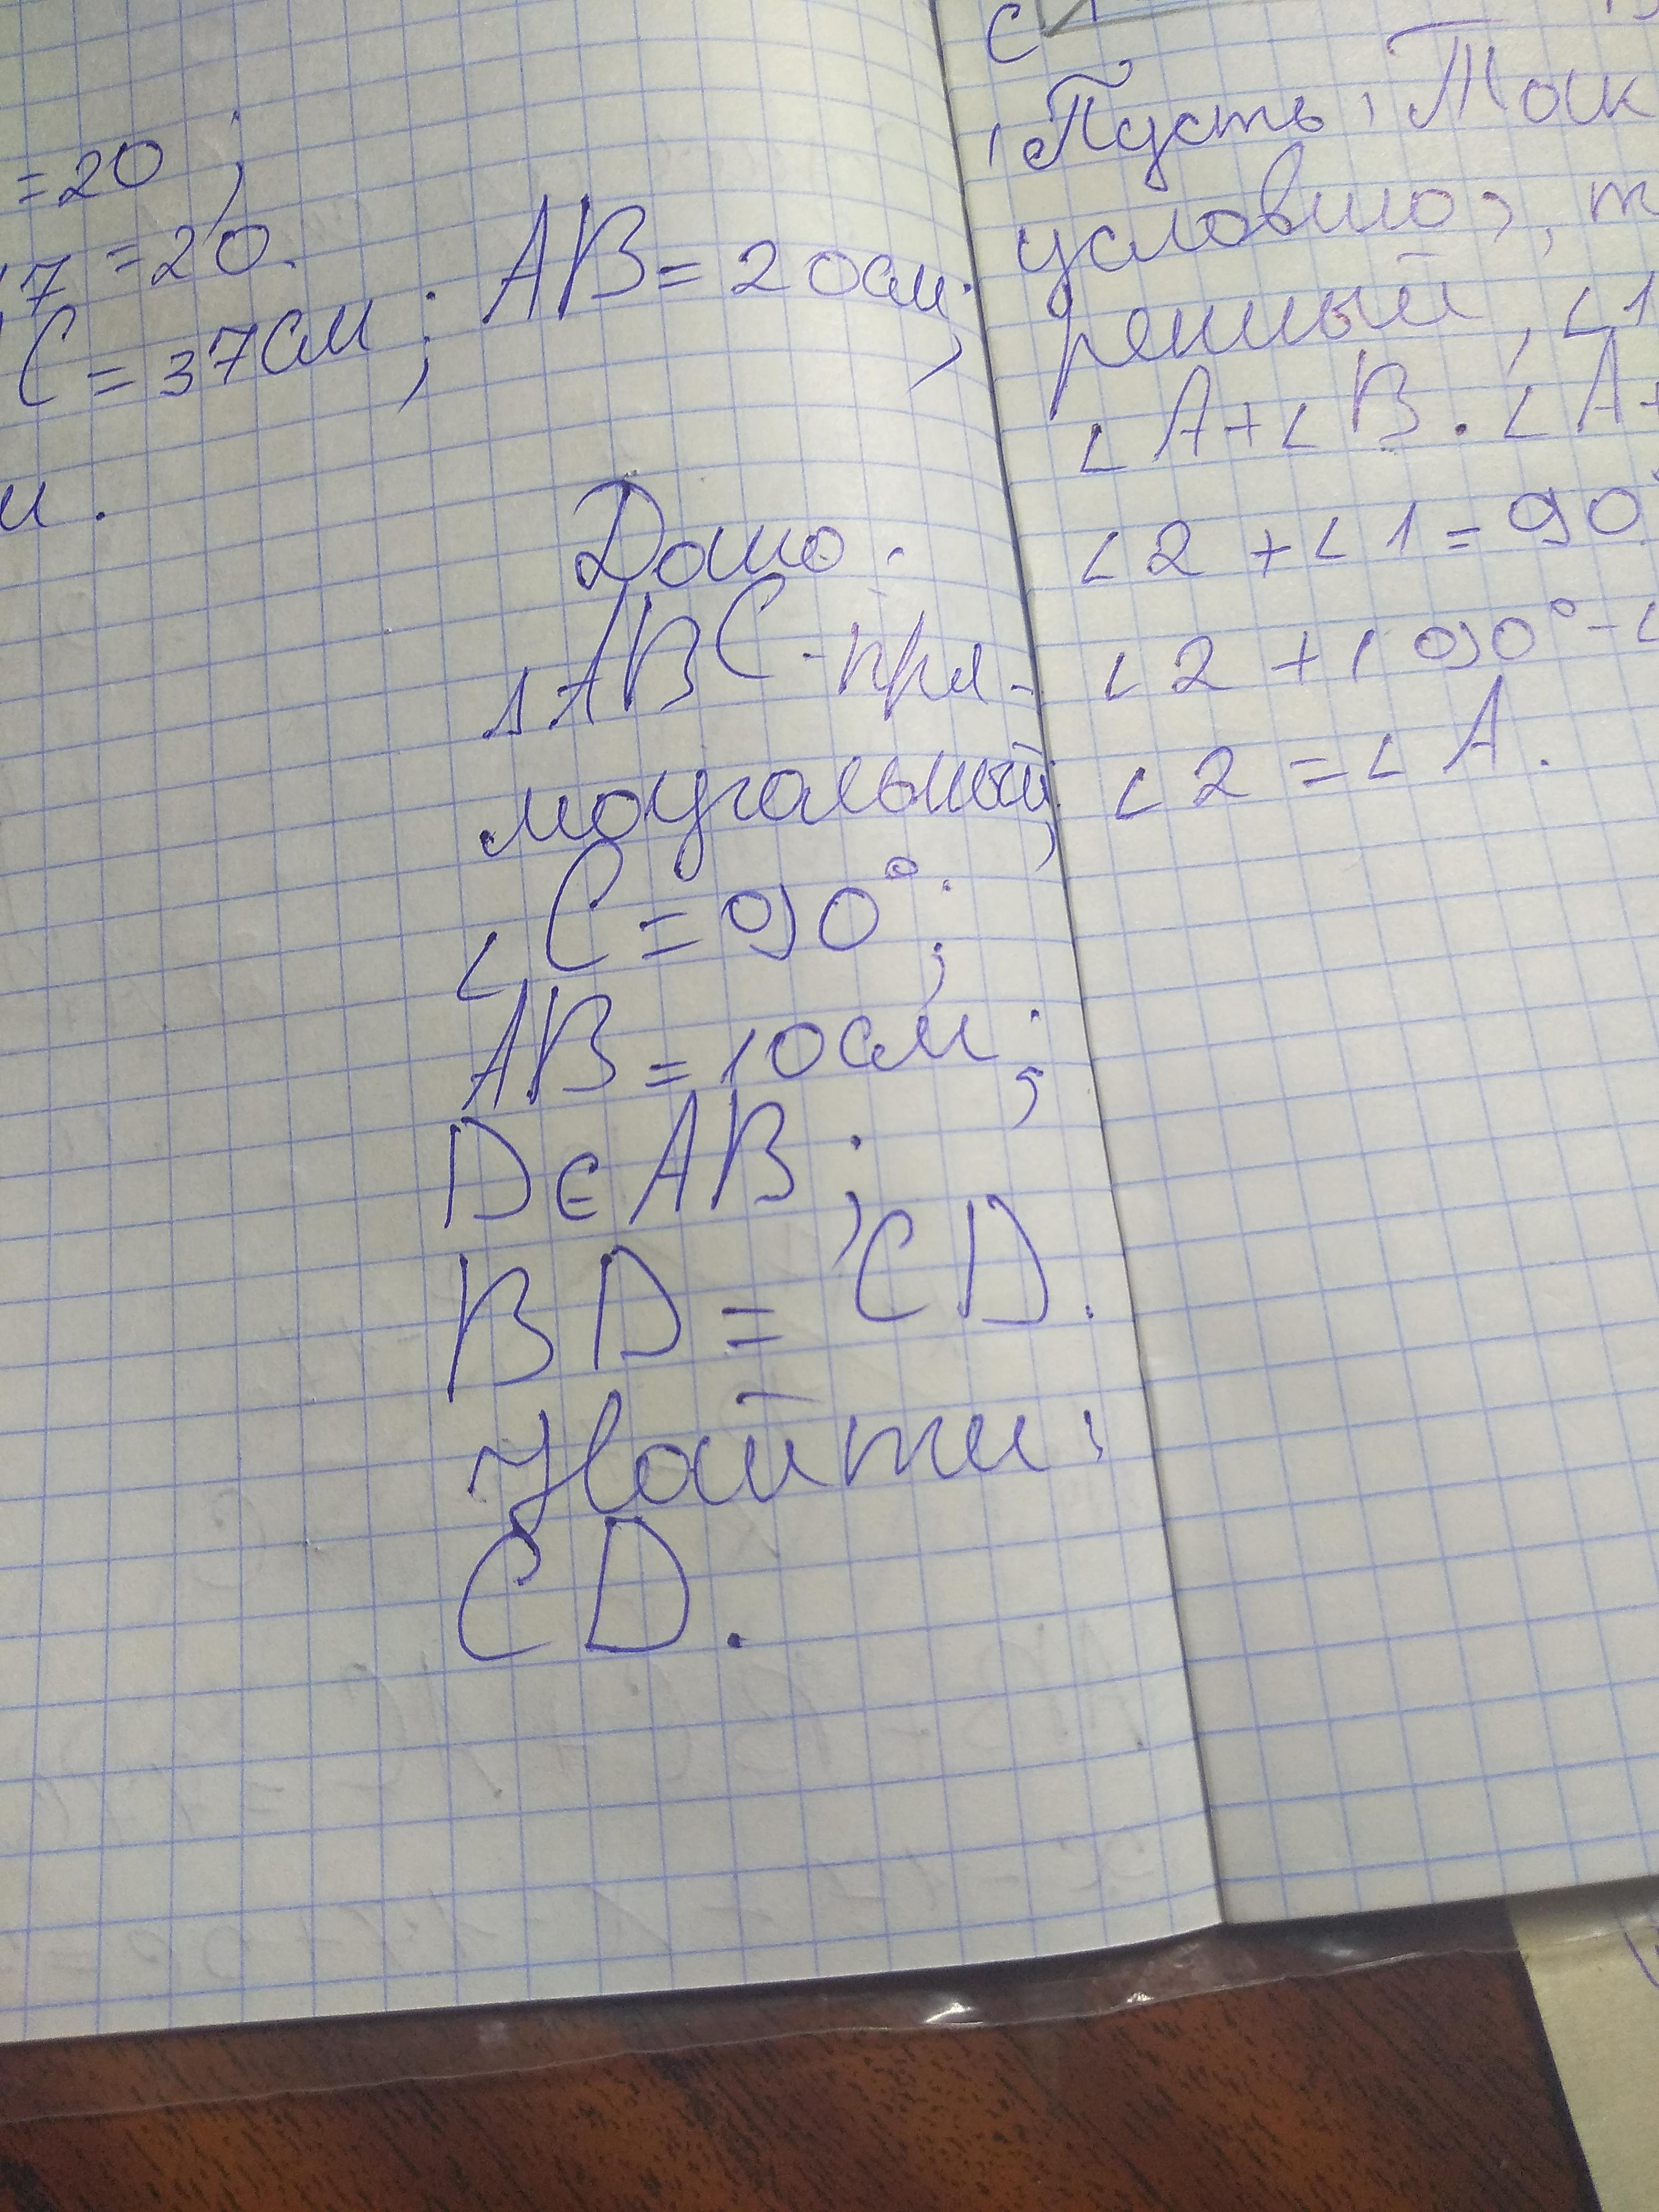 =20;
17=20.
C=37см; AB=20см;
и.
Дано:
△ABC-пря-
моугольный;
∠C=90°;
AB=10см;
D∈AB;
BD=CD.
Найти:
CD.
C
Пусть, Так
условию, т
ренный, ∠1
∠A+∠B. ∠A+
∠2+∠1=90°
∠2+(90°-∠
∠2=∠A.